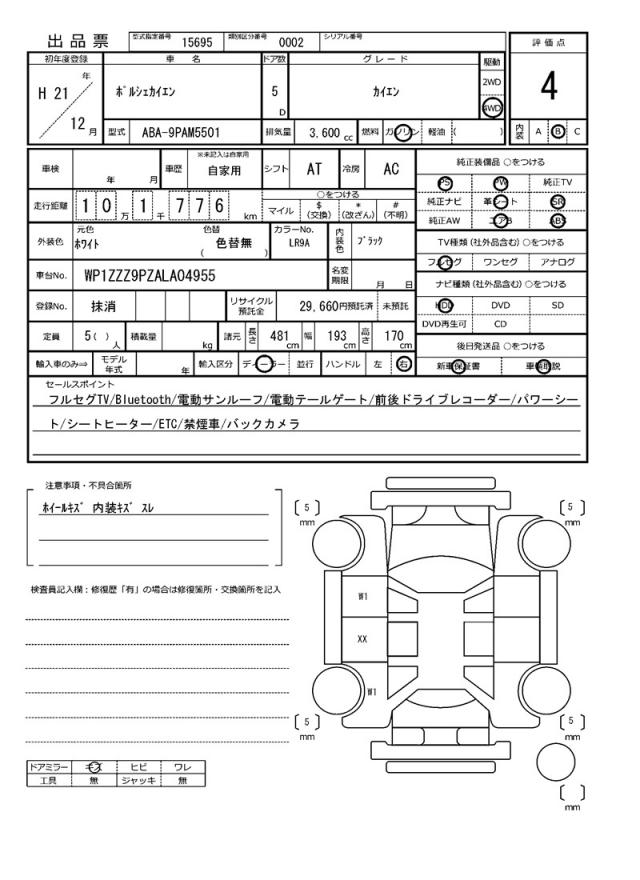 出品票 型式指定番号 15695 類別区分番号 0002 シリアル番号
評価点
初年度登録 車名 ドア数 グレード 駆動
H 21 年 ﾎﾟﾙｼｪｶｲｴﾝ 5 D ｶｲｴﾝ 2WD 4WD 4
12 月 型式 ABA-9PAM5501 排気量 3,600 cc 燃料 ガソリン 軽油 ( ) 内装 A B C
車検 年 月 車歴 ※未記入は自家用 自家用 シフト AT 冷房 AC
純正装備品 ○をつける
PS PW 純正TV
走行距離 1 0 万 1 千 7 7 6 km ○をつける
マイル $(交換) *(改ざん) #(不明)
純正ナビ 革シート SR
純正AW エアB ABS
外装色 元色 ﾎﾜｲﾄ 色替 ( 色替無 ) カラーNo. LR9A 内装色 ﾌﾞﾗｯｸ
TV種類(社外品含む)○をつける
フルセグ ワンセグ アナログ
車台No. WP1ZZZ9PZALA04955 名変期限 月 日
ナビ種類(社外品含む)○をつける
登録No. 抹消 リサイクル預託金 29,660円 預託済 未預託
HDD DVD SD
DVD再生可 CD
定員 5( ) 人 積載量 kg 諸元 長さ 481 cm 幅 193 cm 高さ 170 cm
後日発送品 ○をつける
輸入車のみ⇒ モデル年式 年 輸入区分 ディーラー 並行 ハンドル 左 右
新車保証書 車輌取説
セールスポイント
フルセグTV/Bluetooth/電動サンルーフ/電動テールゲート/前後ドライブレコーダー/パワーシー
ト/シートヒーター/ETC/禁煙車/バックカメラ
注意事項・不具合箇所
ﾎｲｰﾙｷｽﾞ 内装ｷｽﾞ ｽﾚ
検査員記入欄：修復歴「有」の場合は修復箇所・交換箇所を記入
5 mm
5 mm
W1
XX
W1
5 mm
5 mm
mm
ドアミラー キズ ヒビ ワレ
工具 無 ジャッキ 無